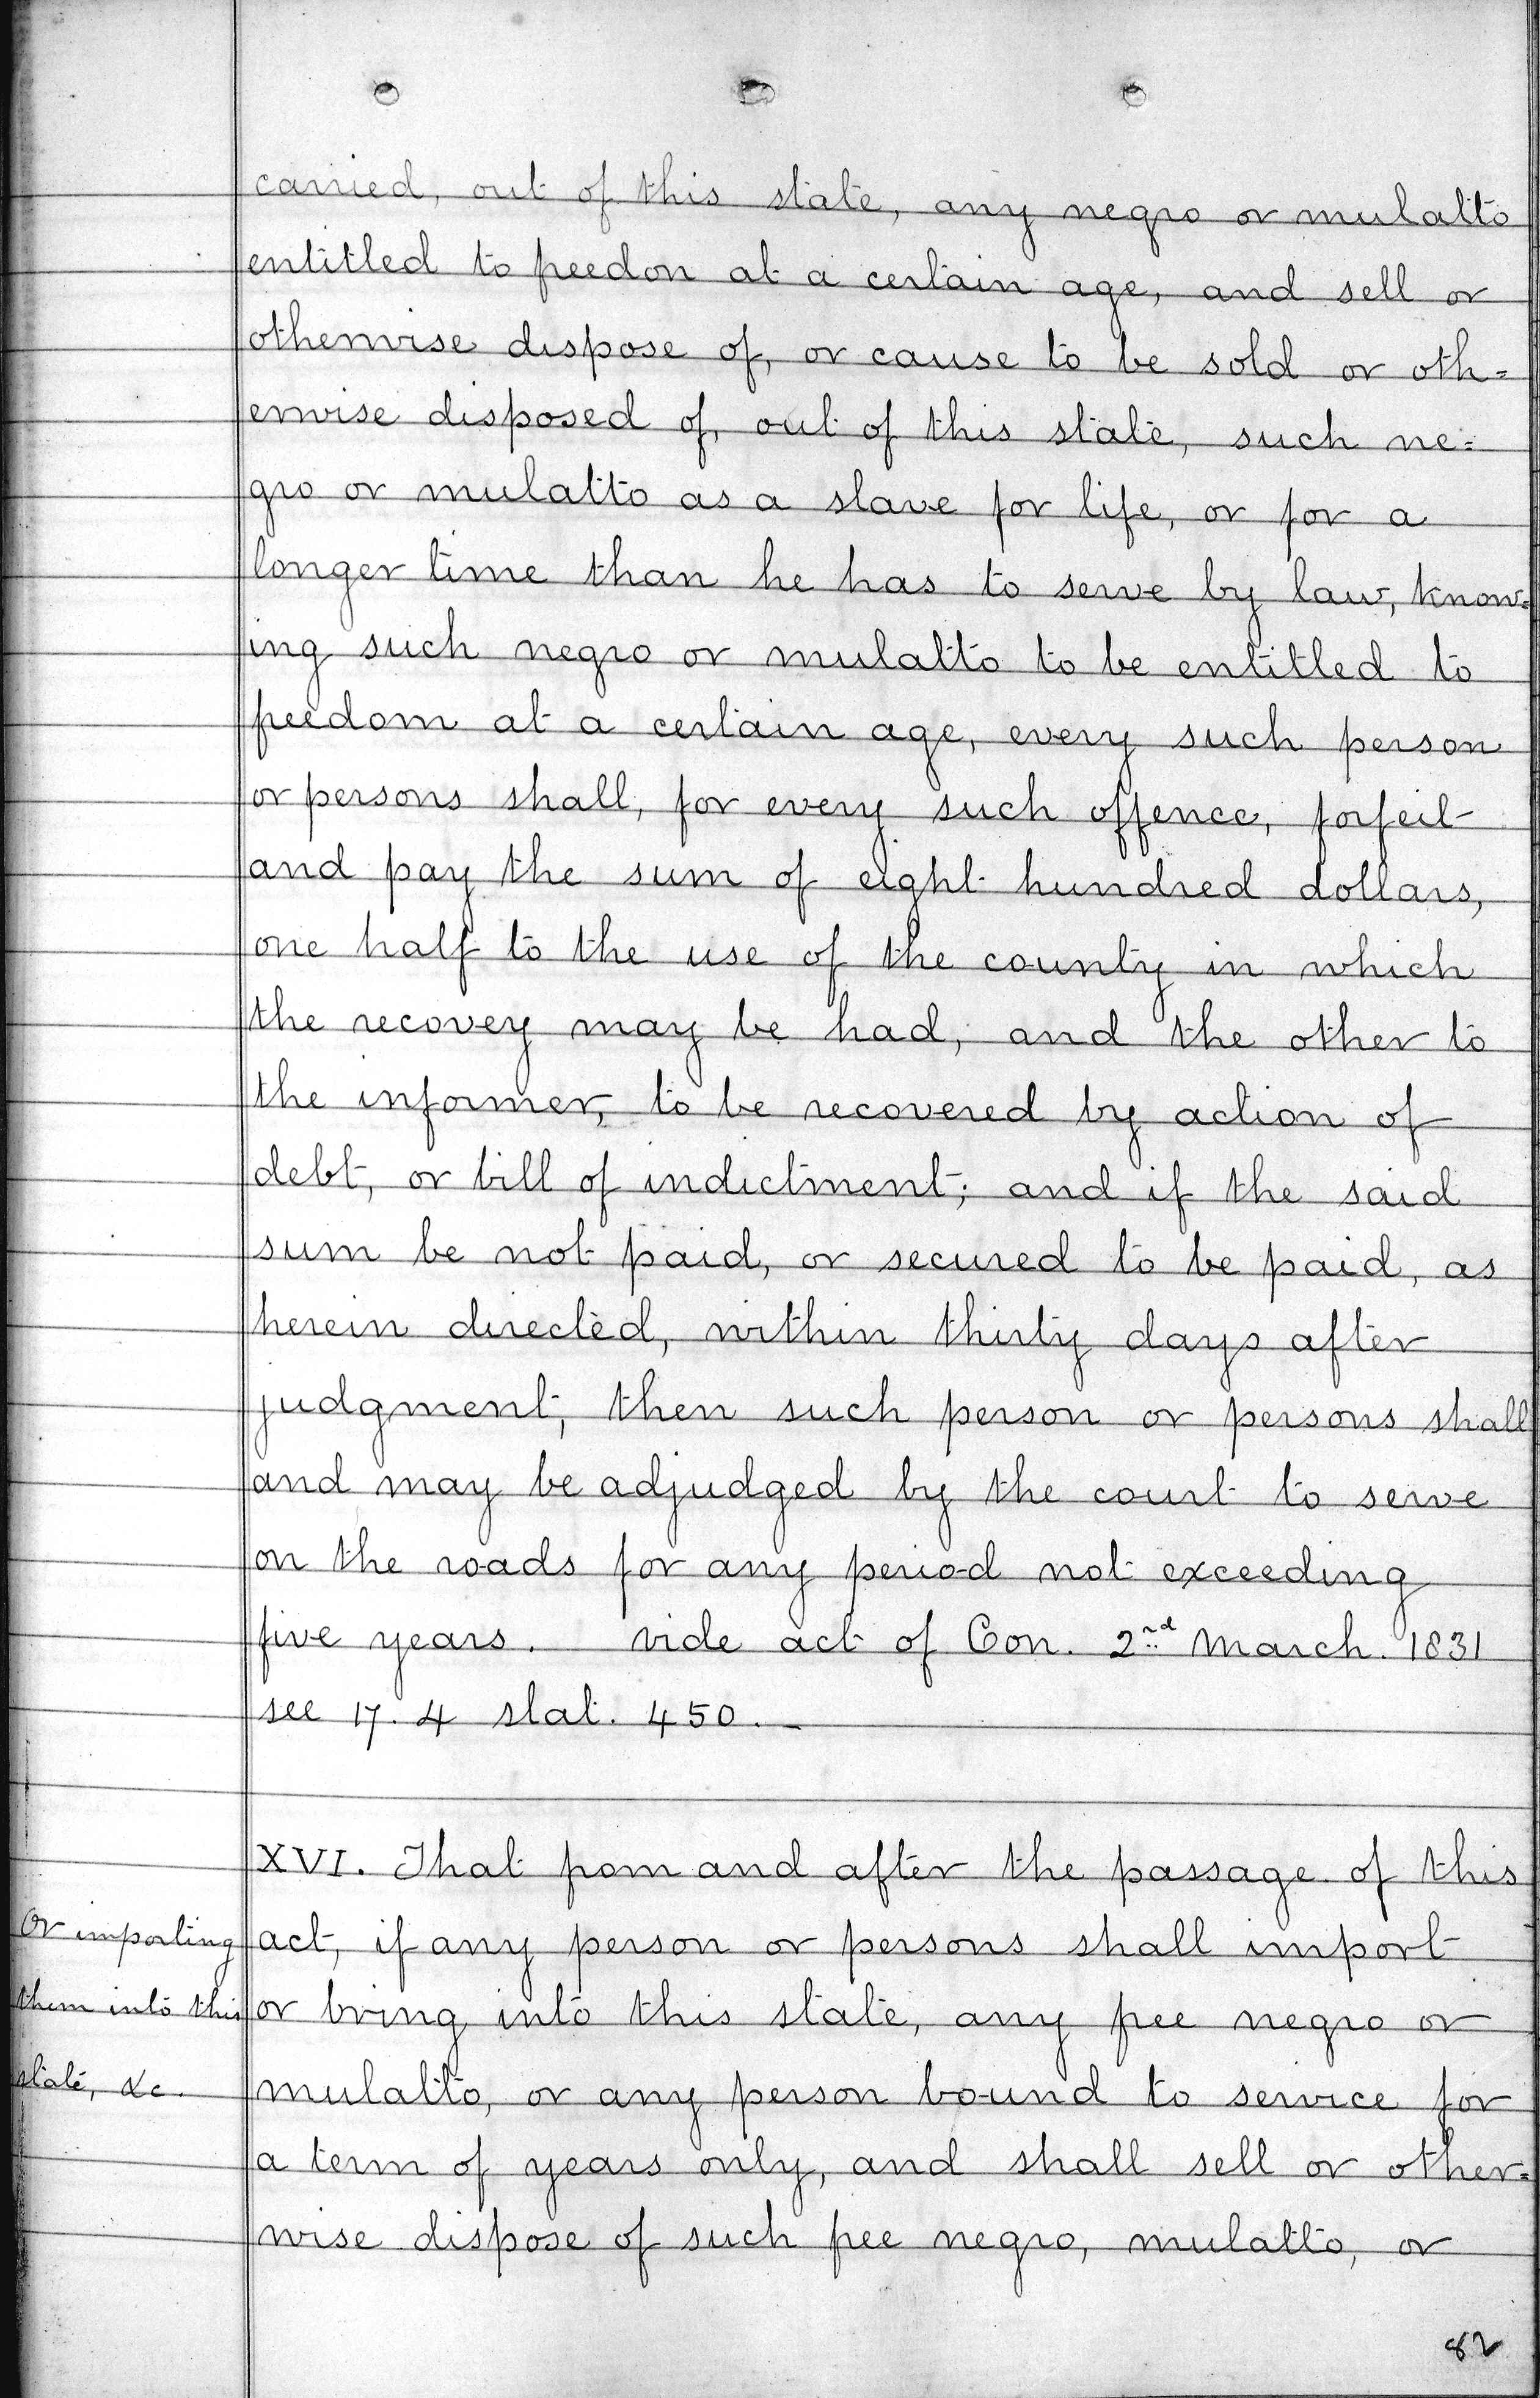 carried, out of this state, any negro or mulatto
entitled to freedon at a certain age, and sell or
otherwise dispose of, or cause to be sold or oth=
erwise disposed of, out of this state, such ne=
gro or mulatto as a slave for life, or for a
longer time than he has to serve by law, know=
ing such negro or mulatto to be entitled to
freedom at a certain age, every such person
or persons shall, for every such offence, forfeit
and pay the sum of eight hundred dollars,
one half to the use of the county in which
the recovey may be had, and the other to
the informer, to be recovered by action of
debt, or bill of indictment; and if the said
sum be not paid, or secured to be paid, as
herein directed, within thirty days after
judgment, then such person or persons shall
and may be adjudged by the court to serve
on the roads for any period not exceeding
five years. vide act of Con. 2nd March. 1831
see 17. 4 stat. 450.
XVI. That from and after the passage of this
Or importing
act, if any person or persons shall import
them into this
or bring into this state, any free negro or
state, &c.
mulatto, or any person bound to service for
a term of years only, and shall sell or other=
wise dispose of such free negro, mulatto, or
82